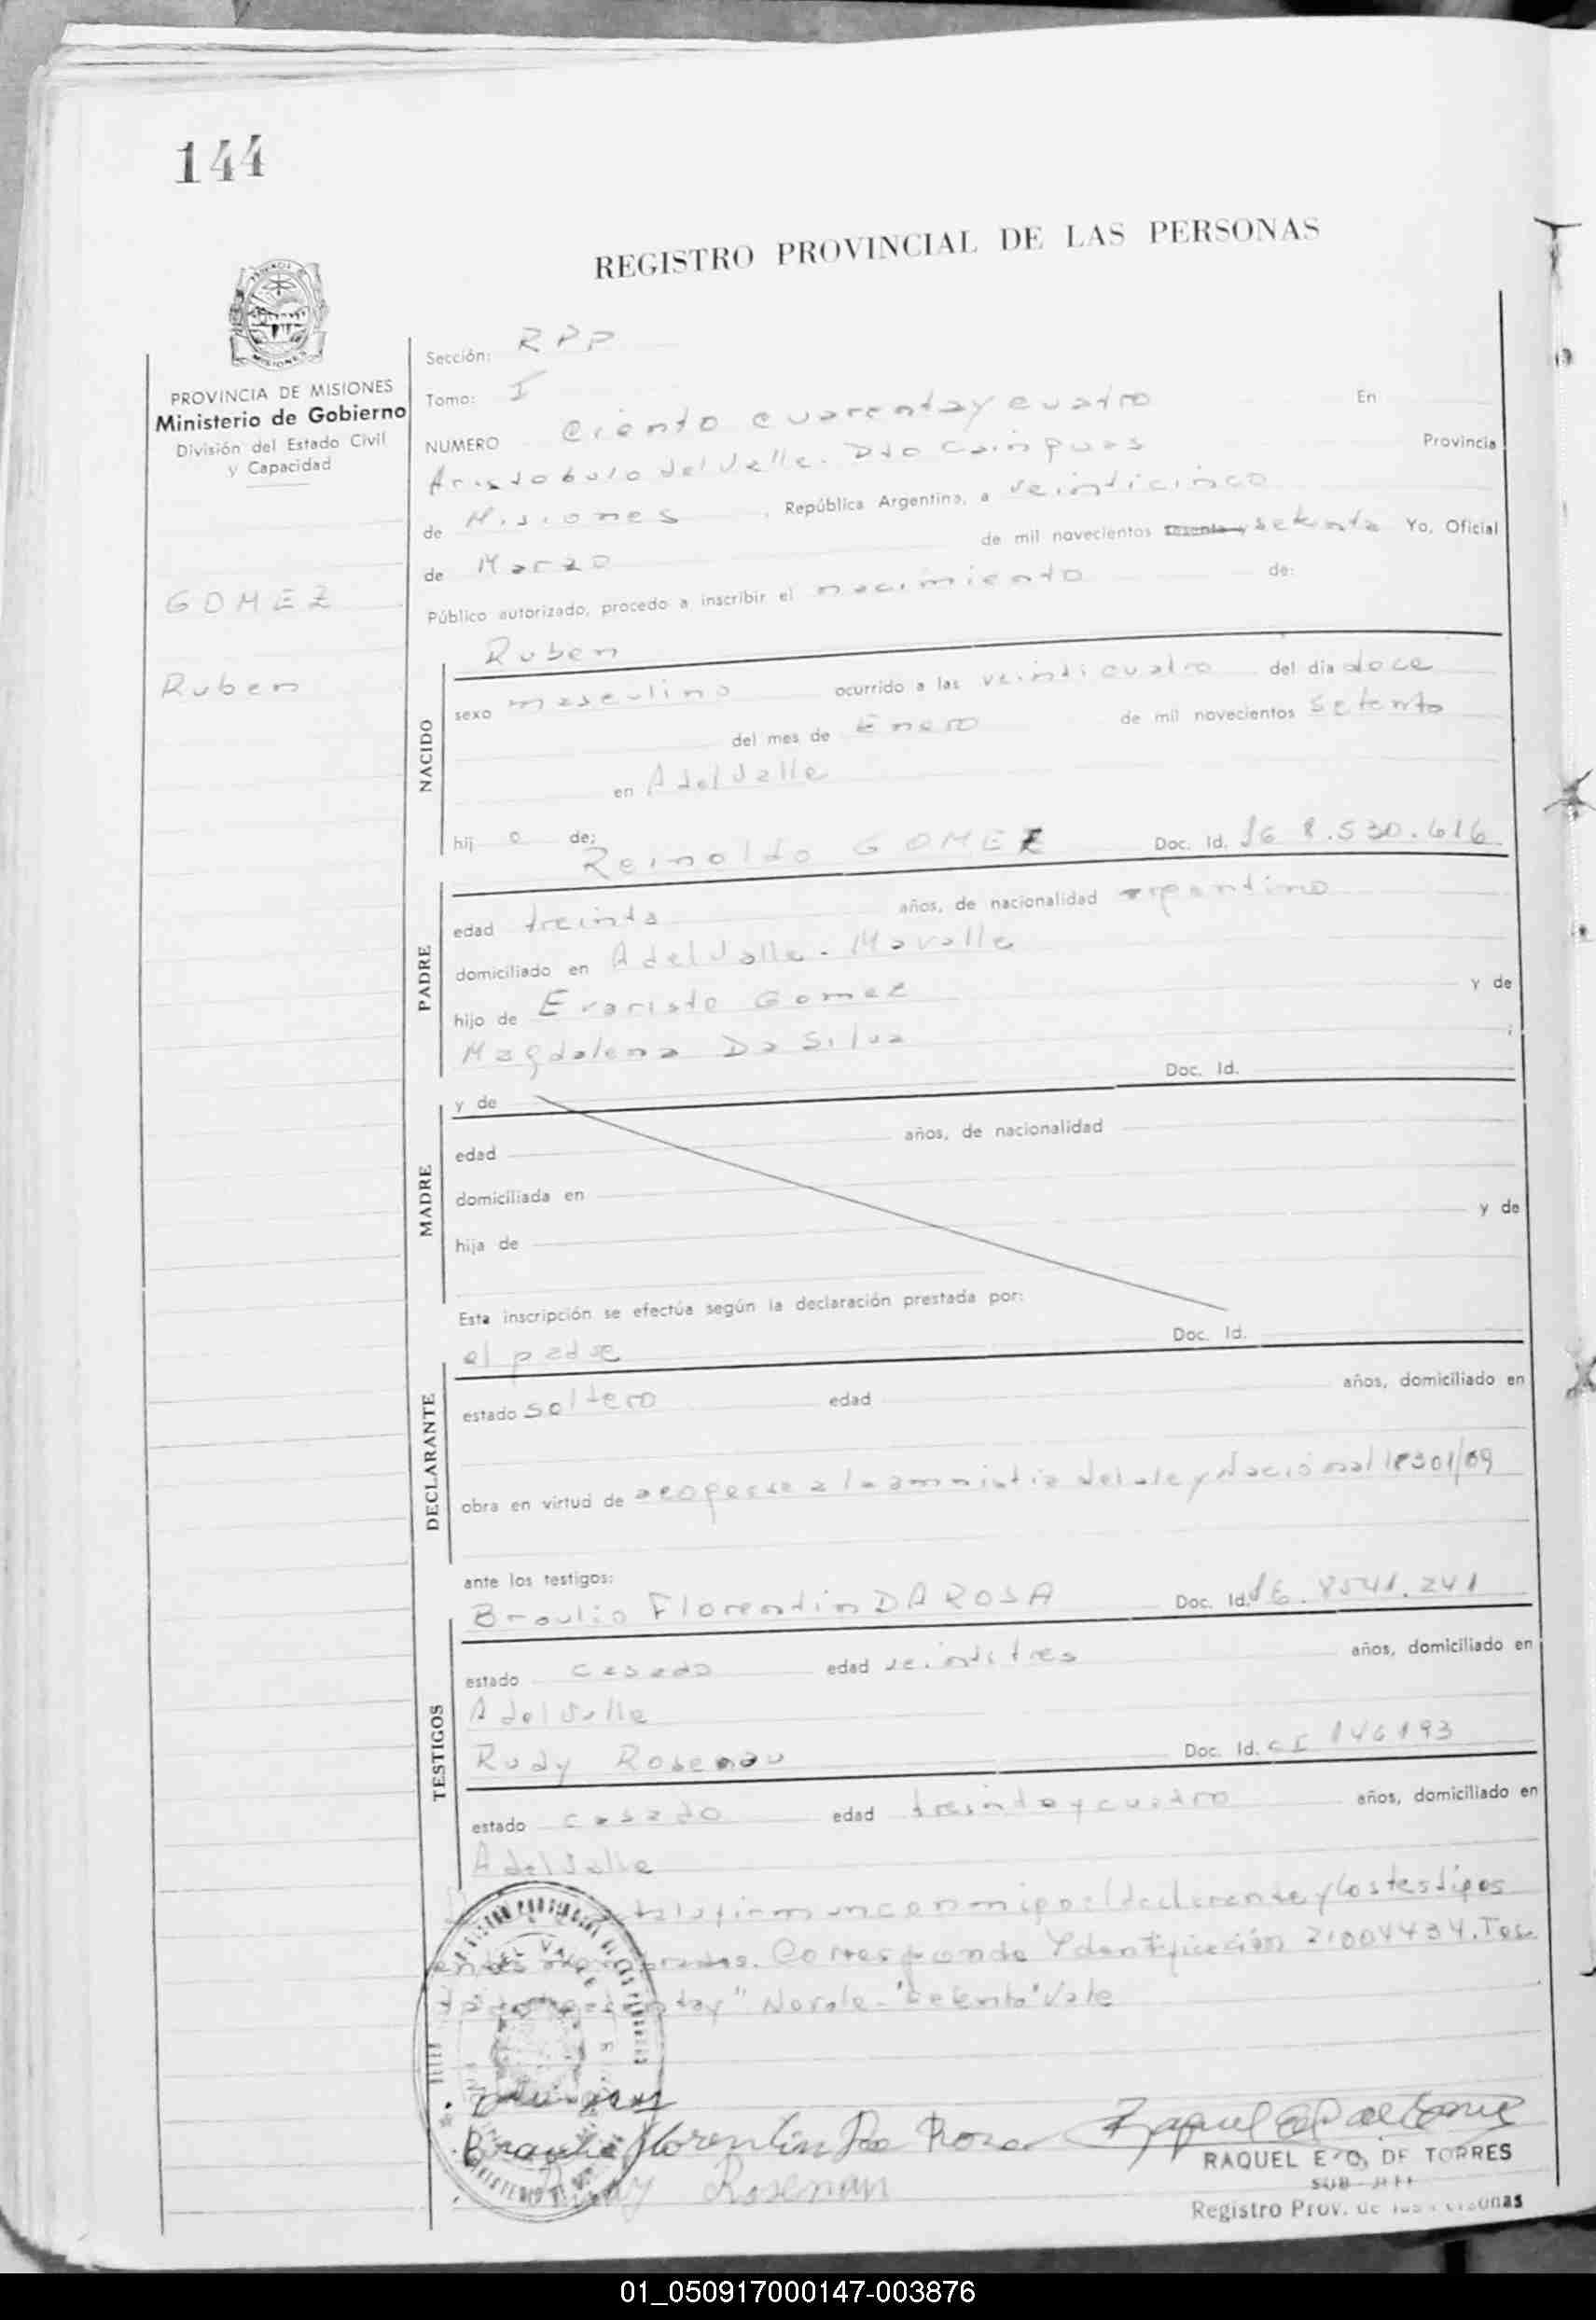 144
REGISTRO PROVINCIAL DE LAS PERSONAS
PROVINCIA DE MISIONES
Ministerio de Gobierno
División del Estado Civil
y Capacidad
GOMEZ
Ruben
Sección: RPP
Tomo: I
NUMERO Ciento cuarenta y cuatro En
Aristobulo del Valle. Dto Cainguas Provincia
de Misiones, República Argentina, a veinticinco
de Marzo de mil novecientos sesenta y setenta Yo, Oficial
Público autorizado, procedo a inscribir el nacimiento de:
Ruben
NACIDO
sexo masculino ocurrido a las veinticuatro del día doce
del mes de Enero de mil novecientos setenta
en A del Valle
hij o de: Reinoldo GOMEZ Doc. Id. 8.530.616
PADRE
edad treinta años, de nacionalidad argentino
domiciliado en A del Valle.
hijo de Evaristo Gomez y de
Magdalena Da Silva ;
MADRE
y de Doc. Id.
edad años, de nacionalidad
domiciliada en
hija de y de
Esta inscripción se efectúa según la declaración prestada por:
el padre Doc. Id.
DECLARANTE
estado soltero edad años, domiciliado en
obra en virtud de acogerse a la amnistia de la ley Nacional 18301/69
ante los testigos:
TESTIGOS
Braulio Florentin DA ROSA Doc. Id. 8541.241
estado casado edad veintitres años, domiciliado en
A del Valle
Rudy Rosenau Doc. Id. CI 146193
estado casado edad treinta y cuatro años, domiciliado en
A del Valle
firman conmigo el declarante y los testigos
Corresponde Ydentificación 21004434. Tes
" No vale - "setenta" Vale
Braulio Florentin Da Rosa
Rudy Rosenau
RAQUEL E. O. DE TORRES
SUB-JEFE
Registro Prov. de las Personas
01_050917000147-003876